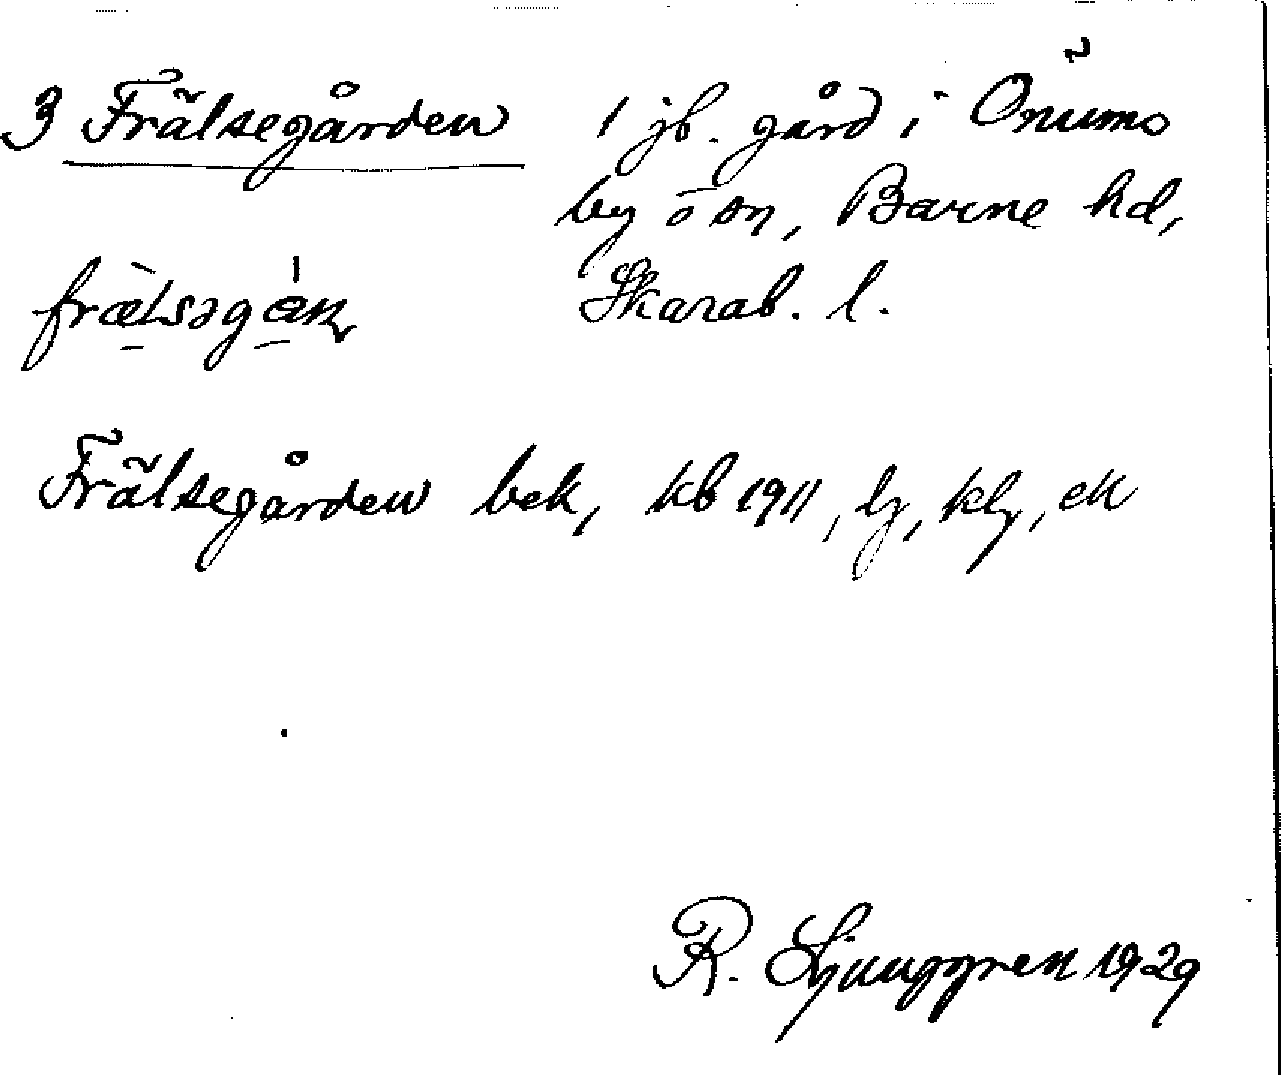 3 Frälsegården 1 jb. gård i Önums
by o sn, Barne hd,
Skarab. l.
Frälsegården bek, kb 1911, lg, klg, ek
R. Ljunggren 1929